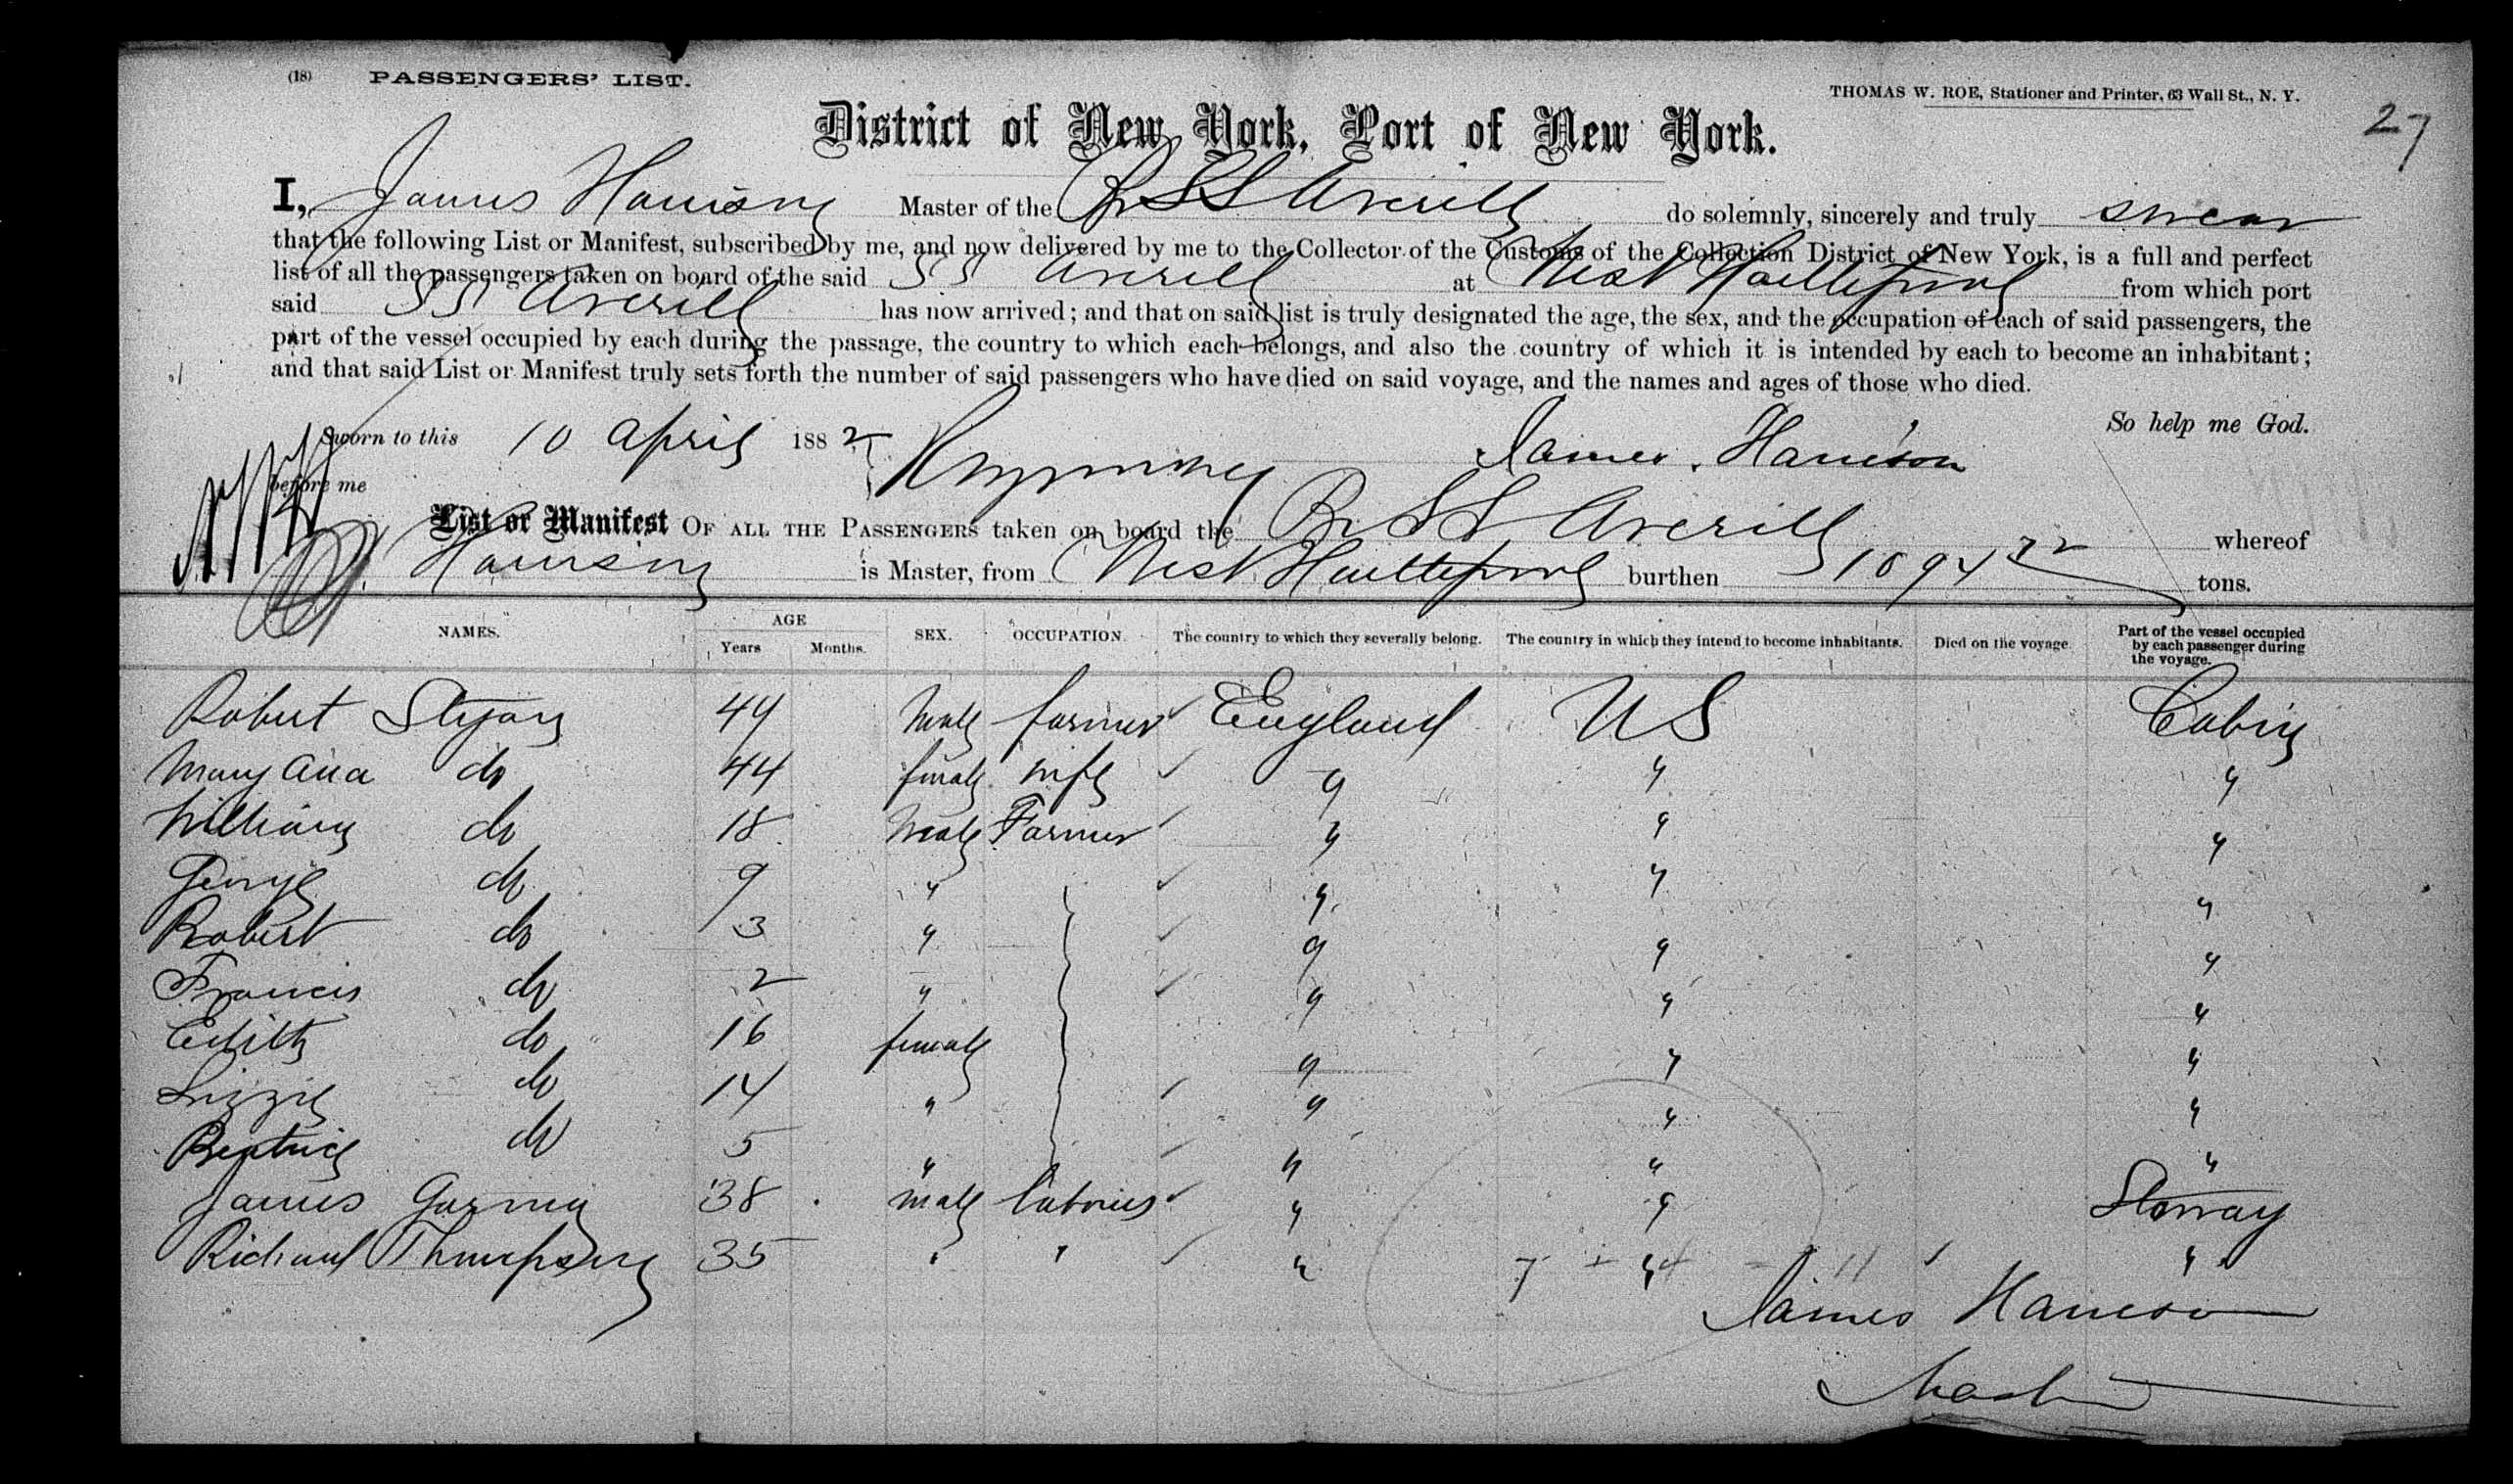 (18) PASSENGERS' LIST.
THOMAS W. ROE, Stationer and Printer, 63 Wall St., N. Y.
27
District of New York, Port of New York.
I, James Harrison Master of the Br SS Averill do solemnly, sincerely and truly swear
that the following List or Manifest, subscribed by me, and now delivered by me to the Collector of the Customs of the Collection District of New York, is a full and perfect
list of all the passengers taken on board of the said SS Averill at West Hartlepool from which port
said SS Averill has now arrived; and that on said list is truly designated the age, the sex, and the occupation of each of said passengers, the
part of the vessel occupied by each during the passage, the country to which each belongs, and also the country of which it is intended by each to become an inhabitant;
and that said List or Manifest truly sets forth the number of said passengers who have died on said voyage, and the names and ages of those who died.
So help me God.
Sworn to this 10 April 1882 James Harrison
before me
List or Manifest OF ALL THE PASSENGERS taken on board the Br SS Averill whereof
Harrison is Master, from West Hartlepool burthen 1894 72 tons.
NAMES. AGE Years Months. SEX. OCCUPATION. The country to which they severally belong. The country in which they intend to become inhabitants. Died on the voyage. Part of the vessel occupied by each passenger during the voyage.
Robert Styan 44 Male farmer England US Cabin
Mary Ann do 44 female wife " " "
William do 18 Male Farmer " " "
George do 9 " " " "
Robert do 3 " " " "
Francis do 2 " " " "
Edith do 16 female " " "
Lizzie do 14 " " " "
Beatrice do 5 " " " "
James 38 male laborer " " Stoway
Richard Thompson 35 " " " " "
7 + 4 - 11
James Harrison
Master